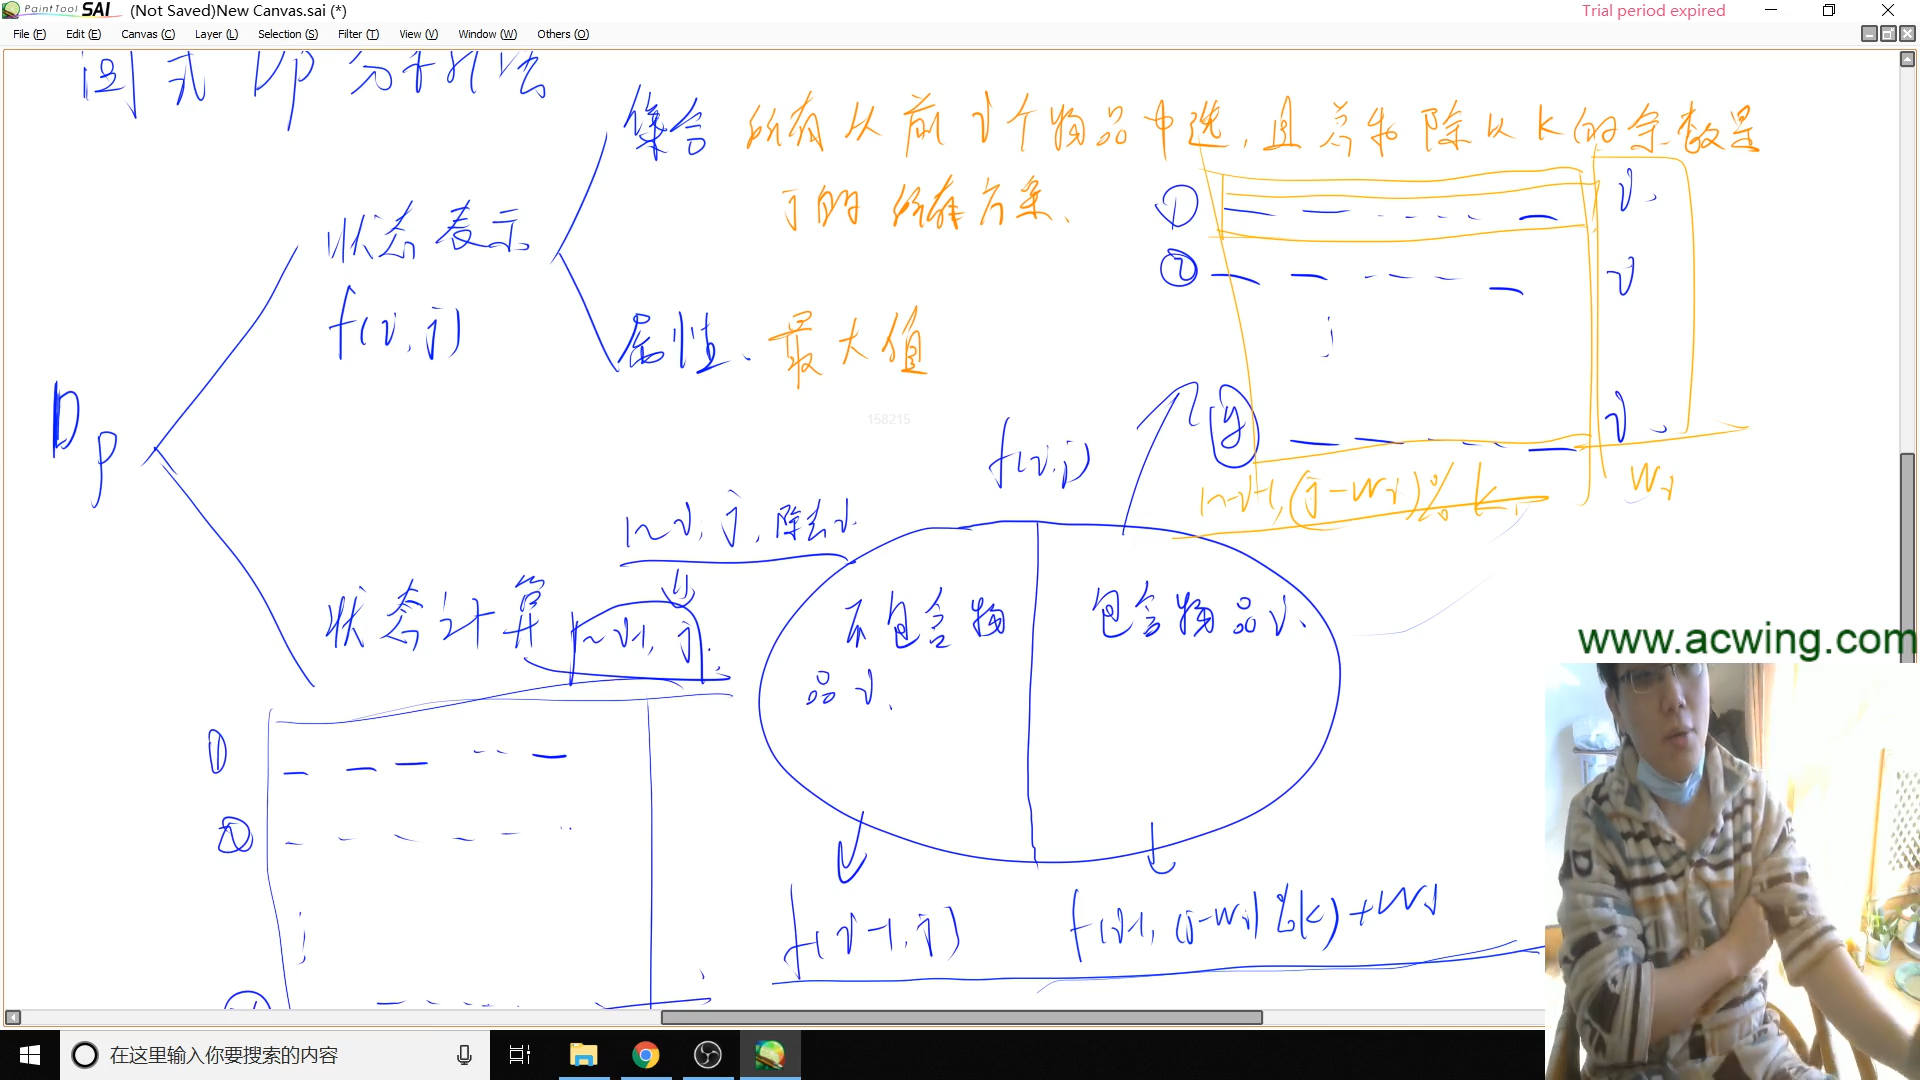 PaintTool SAI (Not Saved)New Canvas.sai (*)
Trial period expired
File (F) Edit (E) Canvas (C) Layer (L) Selection (S) Filter (T) View (V) Window (W) Others (O)
闫式 DP 分析法
集合 所有从前i个物品中选,且总和除以K的余数是
j的 所有方案、
状态表示
f(i, j)
属性、最大值
DP
① i
② i
i
1~i-1, (j-wi)% k, wi
158215
f(i,j)
1~i, j, 除去i
状态计算 1~i-1, j
不包含物
品i、
包含物品i、
①
②
f(i-1, j) f(i-1, (j-wi)%k)+wi
www.acwing.com
在这里输入你要搜索的内容